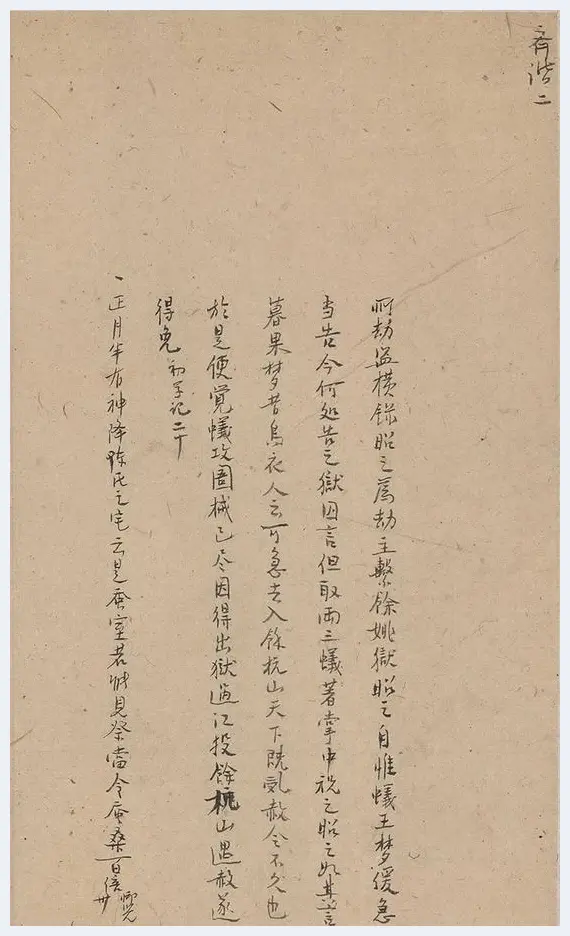 齐谐二
所劫盗横録昭之為劫主繫餘姚獄昭之自惟蟻王梦缓急
当告今何处告之獄囚言但取两三蟻著掌中祝之昭之如其言
暮果梦昔烏衣人云可急去入餘杭山天下既乱赦令不久也
於是便覚蟻攻囓械已尽因得出獄過江投餘杭山遇赦遂
得免 初学记二十
一正月半有神降陈氏之宅云是蚕室若能見祭當令蚕桑百倍 御覧卅